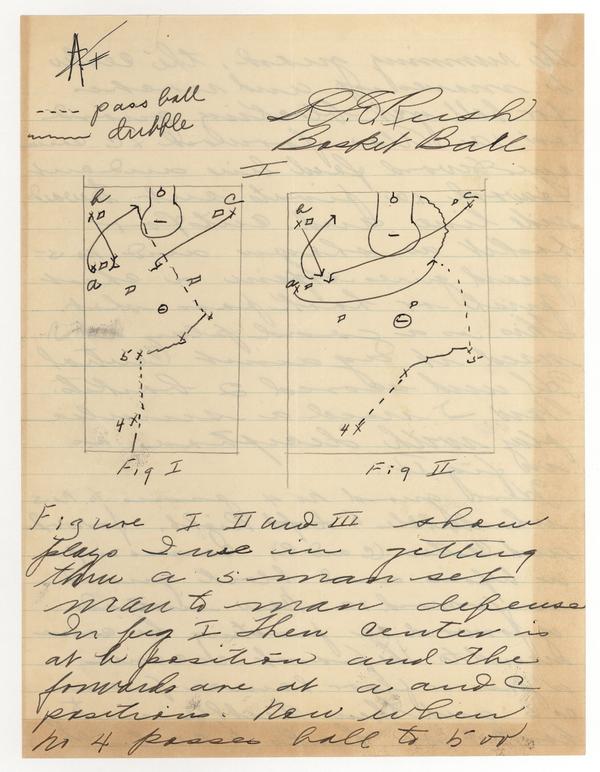 A+
---- pass ball
dribble
R. E. Rush
Basket Ball
I
h c
a
5
4
Fig I
h c
a
5
4
Fig II
Figure I II and III show
plays I use in getting
thru a 5 man set
man to man defense
In fig I then center is
at h position and the
forwards are at a and C
positions. Now when
4 passes ball to 5 or